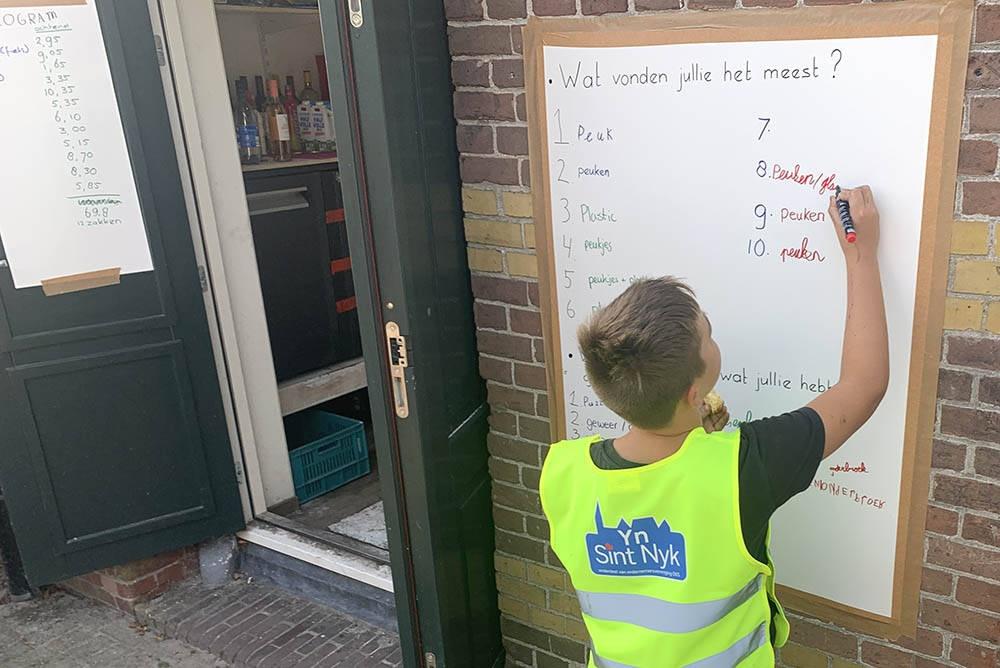 OGRAM
achtend
2,95
9,05
1,65
3,35
10,35
5,35
6,10
3,00
5,15
8,70
8,30
5,85
69.8
12 zakken
• Wat vonden jullie het meest?
1 Peuk
2 peuken
3 Plastic
4 peukjes
5 peukjes +
6
7.
8. Peuken/gla
9. Peuken
10. peuken
wat jullie hebb
1.
2. geweer/
3
onderbroek
Yn
Sint Nyk